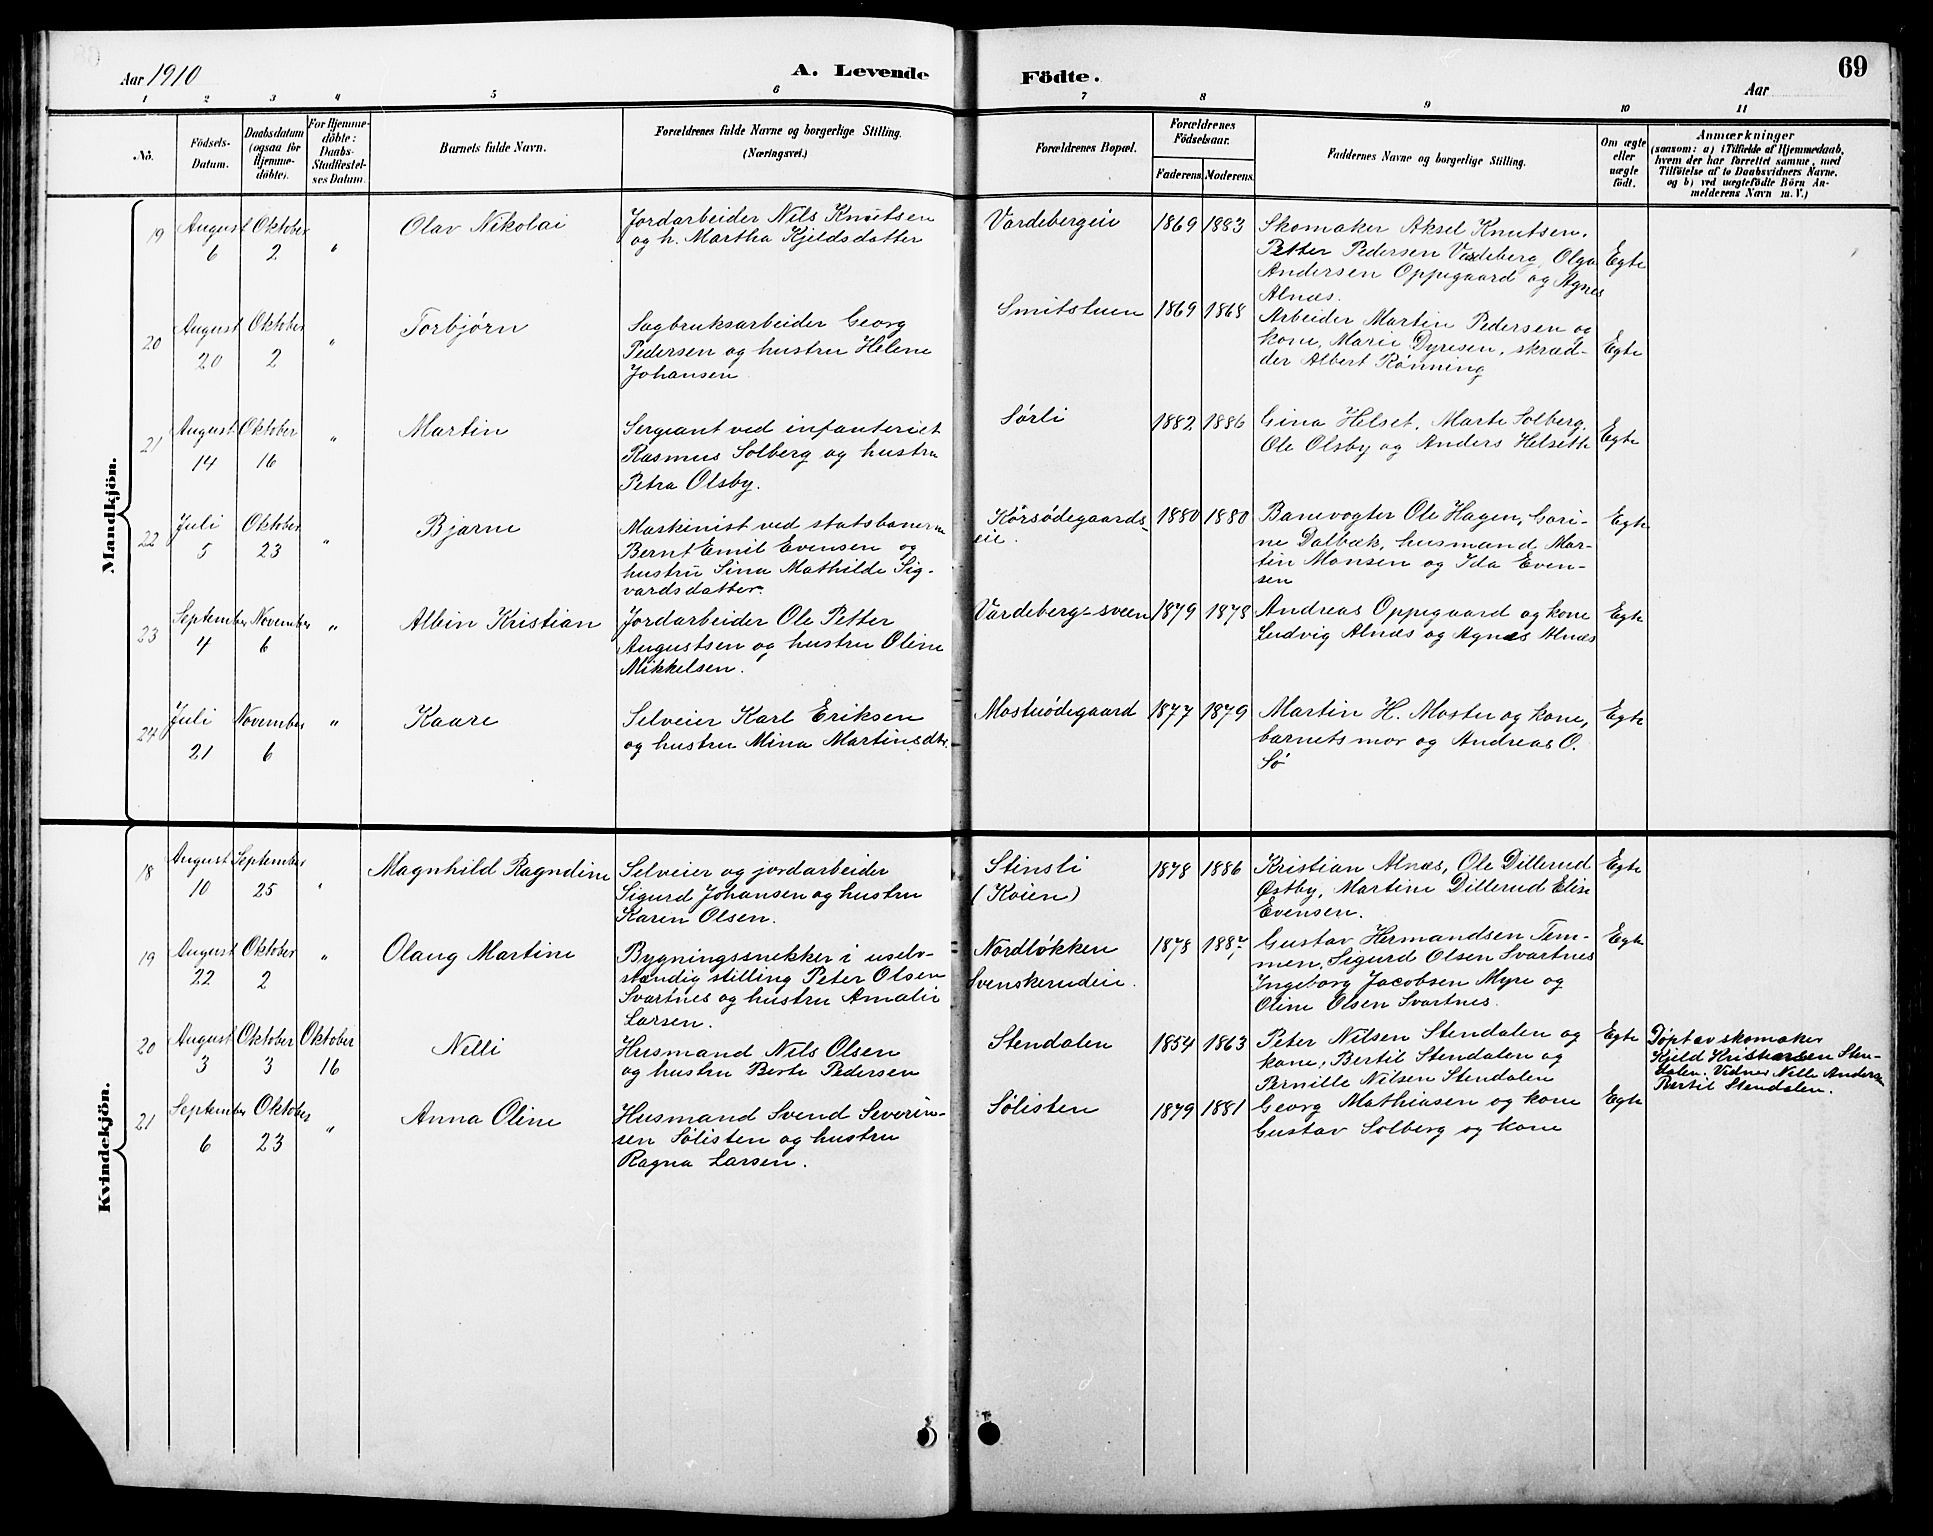 Aar 1910
A. Levende Födte.
69
Aar
1 2 3 4 5 6 7 8 9 10 11
No.
Födsels-
Datum.
Daabsdatum
(ogsaa for
Hjemme-
döbte).
For Hjemme-
döbte:
Daabs-
Stadfæstel-
ses Datum.
Barnets fulde Navn.
Forældrenes fulde Navne og borgerlige Stilling.
(Næringsvei.)
Forældrenes Bopæl.
Forældrenes
Födselsaar.
Faderens. Moderens.
Faddernes Navne og borgerlige Stilling.
Om ægte
eller
uægte
födt.
Anmærkninger
(saasom: a) i Tilfælde af Hjemmedaab,
hvem der har forrettet samme, med
Tilföielse af to Daabsvidners Navne,
og b) ved uægtefödte Börn An-
melderens Navn m. V.)
Mandkjön.
19
August
6
Oktober
2
"
Olav Nikolai
Jordarbeider Nils Knutsen
og h. Martha Kjeldsdatter
Vardebergeie
1869
1883
Skomaker Aksel Knutsen,
Petter Pedersen Vardeberg, Olga
Andersen Oppegaard og Agnes
Alnæs.
Egte
20
August
20
Oktober
2
"
Torbjørn
Sagbruksarbeider Georg
Pedersen og hustru Helene
Johansen
Smitstuen
1869
1868
Arbeider Martin Pedersen og
kone, Marie Dyresen, skræd-
der Albert Rønning
Egte
21
August
14
Oktober
16
"
Martin
Sergeant ved infanteriet
Rasmus Solberg og hustru
Petra Olsby.
Sørli
1882
1886
Gina Helset, Marte Solberg,
Ole Olsby og Anders Helseth
Egte
22
Juli
5
Oktober
23
"
Bjarne
Maskinist ved statsbanerne
Bernt Emil Evensen og
hustru Sina Mathilde Sig-
vardsdatter.
Korsødegaards-
eie.
1880
1880
Banevogter Ole Hagen, Gori-
ne Dalbæk, husmand Mar-
tin Monsen og Ida Even-
sen
Egte
23
September
4
November
6
"
Albin Kristian
Jordarbeider Ole Petter
Augustsen og hustru Oline
Mikkelsen.
Vardeberg-sveen
1879
1878
Andreas Oppegaard og kone
Ludvig Alnæs og Agnes Alnæs
Egte
24
Juli
21
November
6
"
Kaare
Selveier Karl Eriksen
og hustru Mina Martinsdtr.
Mostueødegaard
1877
1879
Martin H. Moster og kone,
barnets mor og Andreas O.
Sø
Egte
Kvindekjön.
18
August
10
September
25
"
Magnhild Ragndine
Selveier og jordarbeider
Sigurd Johansen og hustru
Karen Olsen.
Stinsli
(Koien)
1878
1886
Kristian Alnæs, Ole Dillerud
Østby, Martine Dillerud Elise
Evensen.
Egte
19
August
22
Oktober
2
"
Olaug Martine
Bygningssnekker i uselv-
stændig stilling Peter Olsen
Svartnes og hustru Amalie
Larsen.
Nordløkken
Svenskerudeie.
1878
1887
Gustav Hermandsen Tem-
men, Sigurd Olsen Svartnes
Ingeborg Jacobsen Myre og
Oline Olsen Svartnes.
Egte
20
August
3
Oktober
3
Oktober
16
Nelli
Husmand Nils Olsen
og hustru Berte Pedersen
Stendalen
1854
1863
Peter Nilsen Stendalen og
kone, Bertil Stendalen og
Pernille Nilsen Stendalen
Egte
Døpt av skomaker
Kjeld Kristiansen Sten-
dalen. Vidner Nille Anders
Bertil Stendalen.
21
September
6
Oktober
23
"
Anna Oline
Husmand Svend Severin-
sen Sølisten og hustru
Ragna Larsen.
Sølisten
1879
1881
Georg Mathiasen og kone
Gustav Solberg og kone
Egte